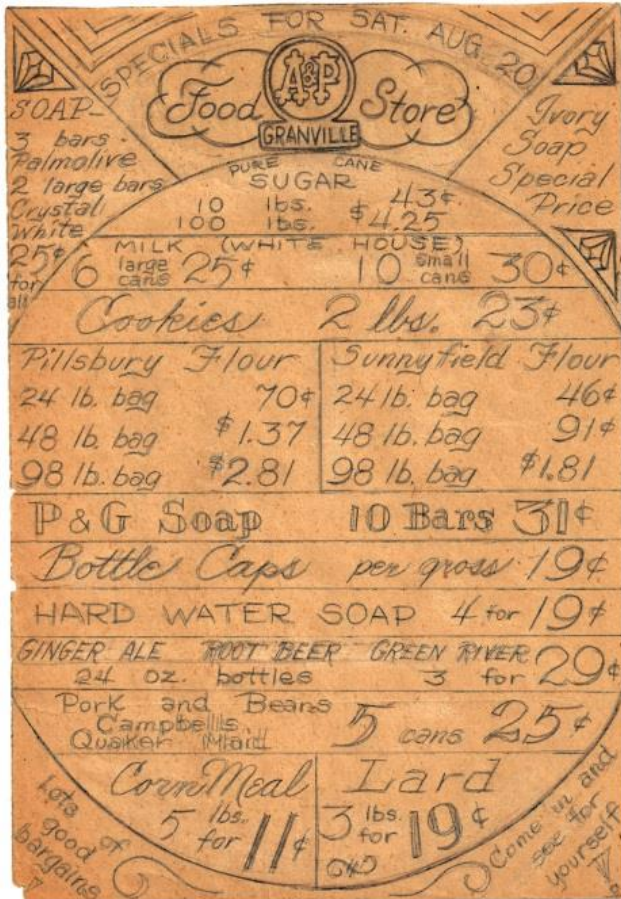 SPECIALS FOR SAT. AUG. 20
A&P
Food Store
GRANVILLE
SOAP-
3 bars
Palmolive
2 large bars
Crystal
White
25¢
for
all
Ivory
Soap
Special
Price
PURE CANE
SUGAR
10 lbs. 43¢
100 lbs. $4.25
MILK (WHITE HOUSE)
6 large cans 25¢ 10 small cans 30¢
Cookies 2 lbs. 23¢
Pillsbury Flour
24 lb. bag 70¢
48 lb. bag $1.37
98 lb. bag $2.81
Sunnyfield Flour
24 lb. bag 46¢
48 lb. bag 91¢
98 lb. bag $1.81
P & G Soap 10 Bars 31¢
Bottle Caps per gross 19¢
HARD WATER SOAP 4 for 19¢
GINGER ALE ROOT BEER GREEN RIVER
24 oz. bottles 3 for 29¢
Pork and Beans
Campbells
Quaker Maid
5 cans 25¢
Corn Meal
5 lbs. for 11¢
Lard
3 lbs. for 19¢
Lots
of
good
bargains
Come in and
see for
yourself